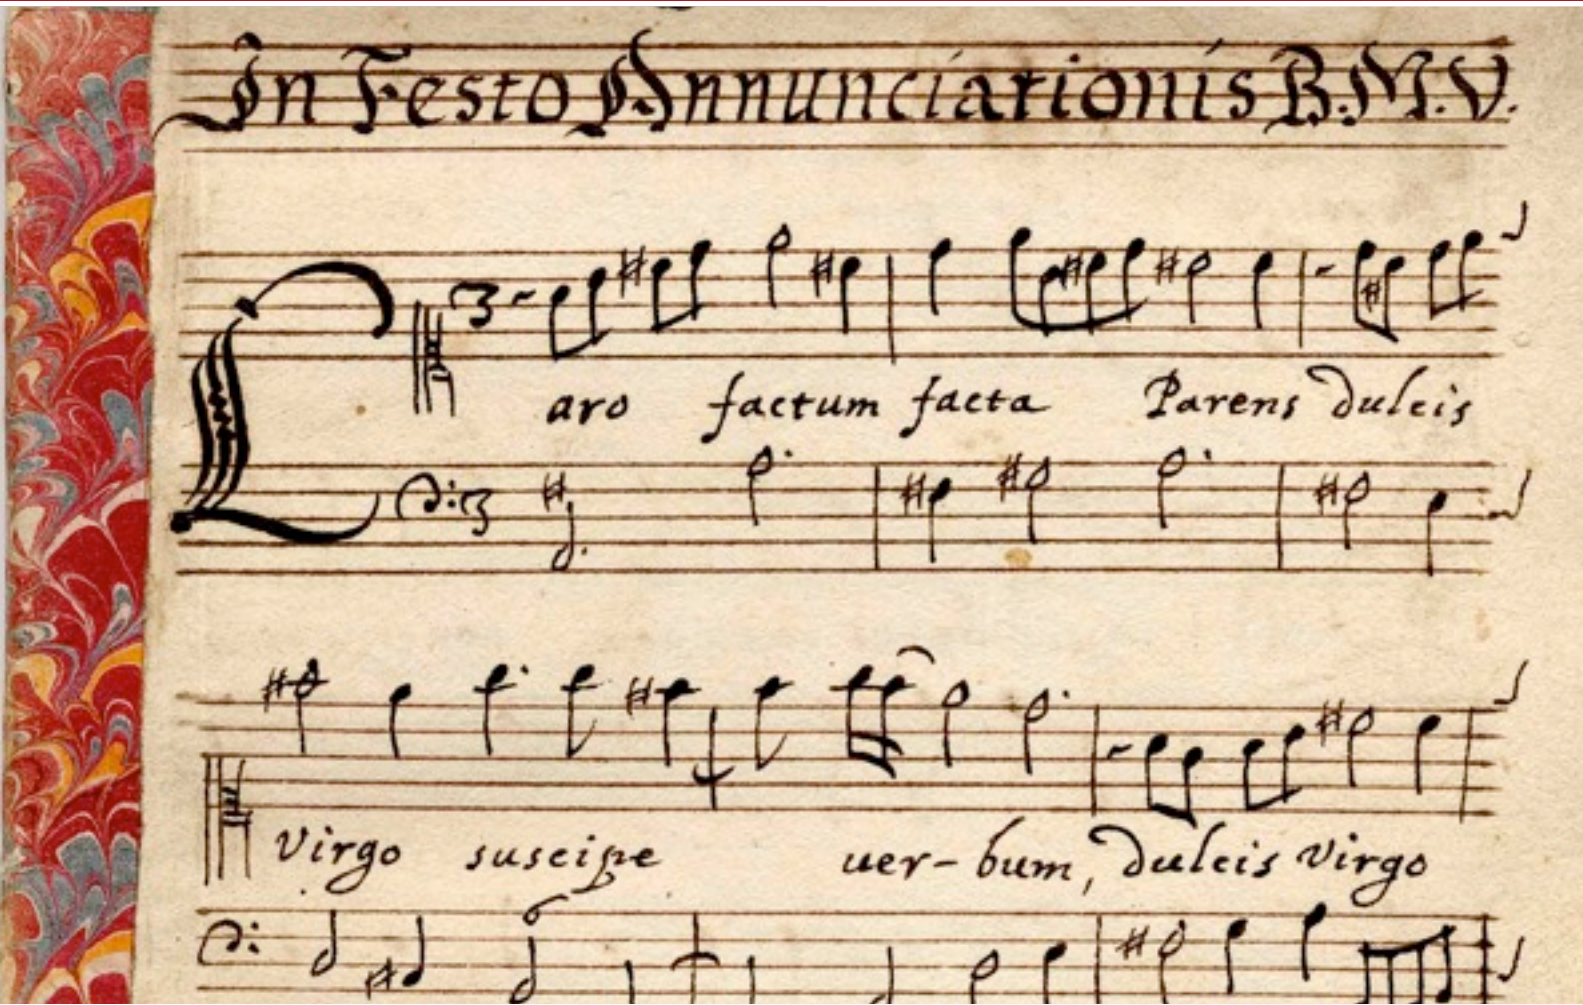 In Festo Annunciationis B.M.V.
Caro factum facta Parens dulcis
Virgo suscipe uer-bum, dulcis Virgo